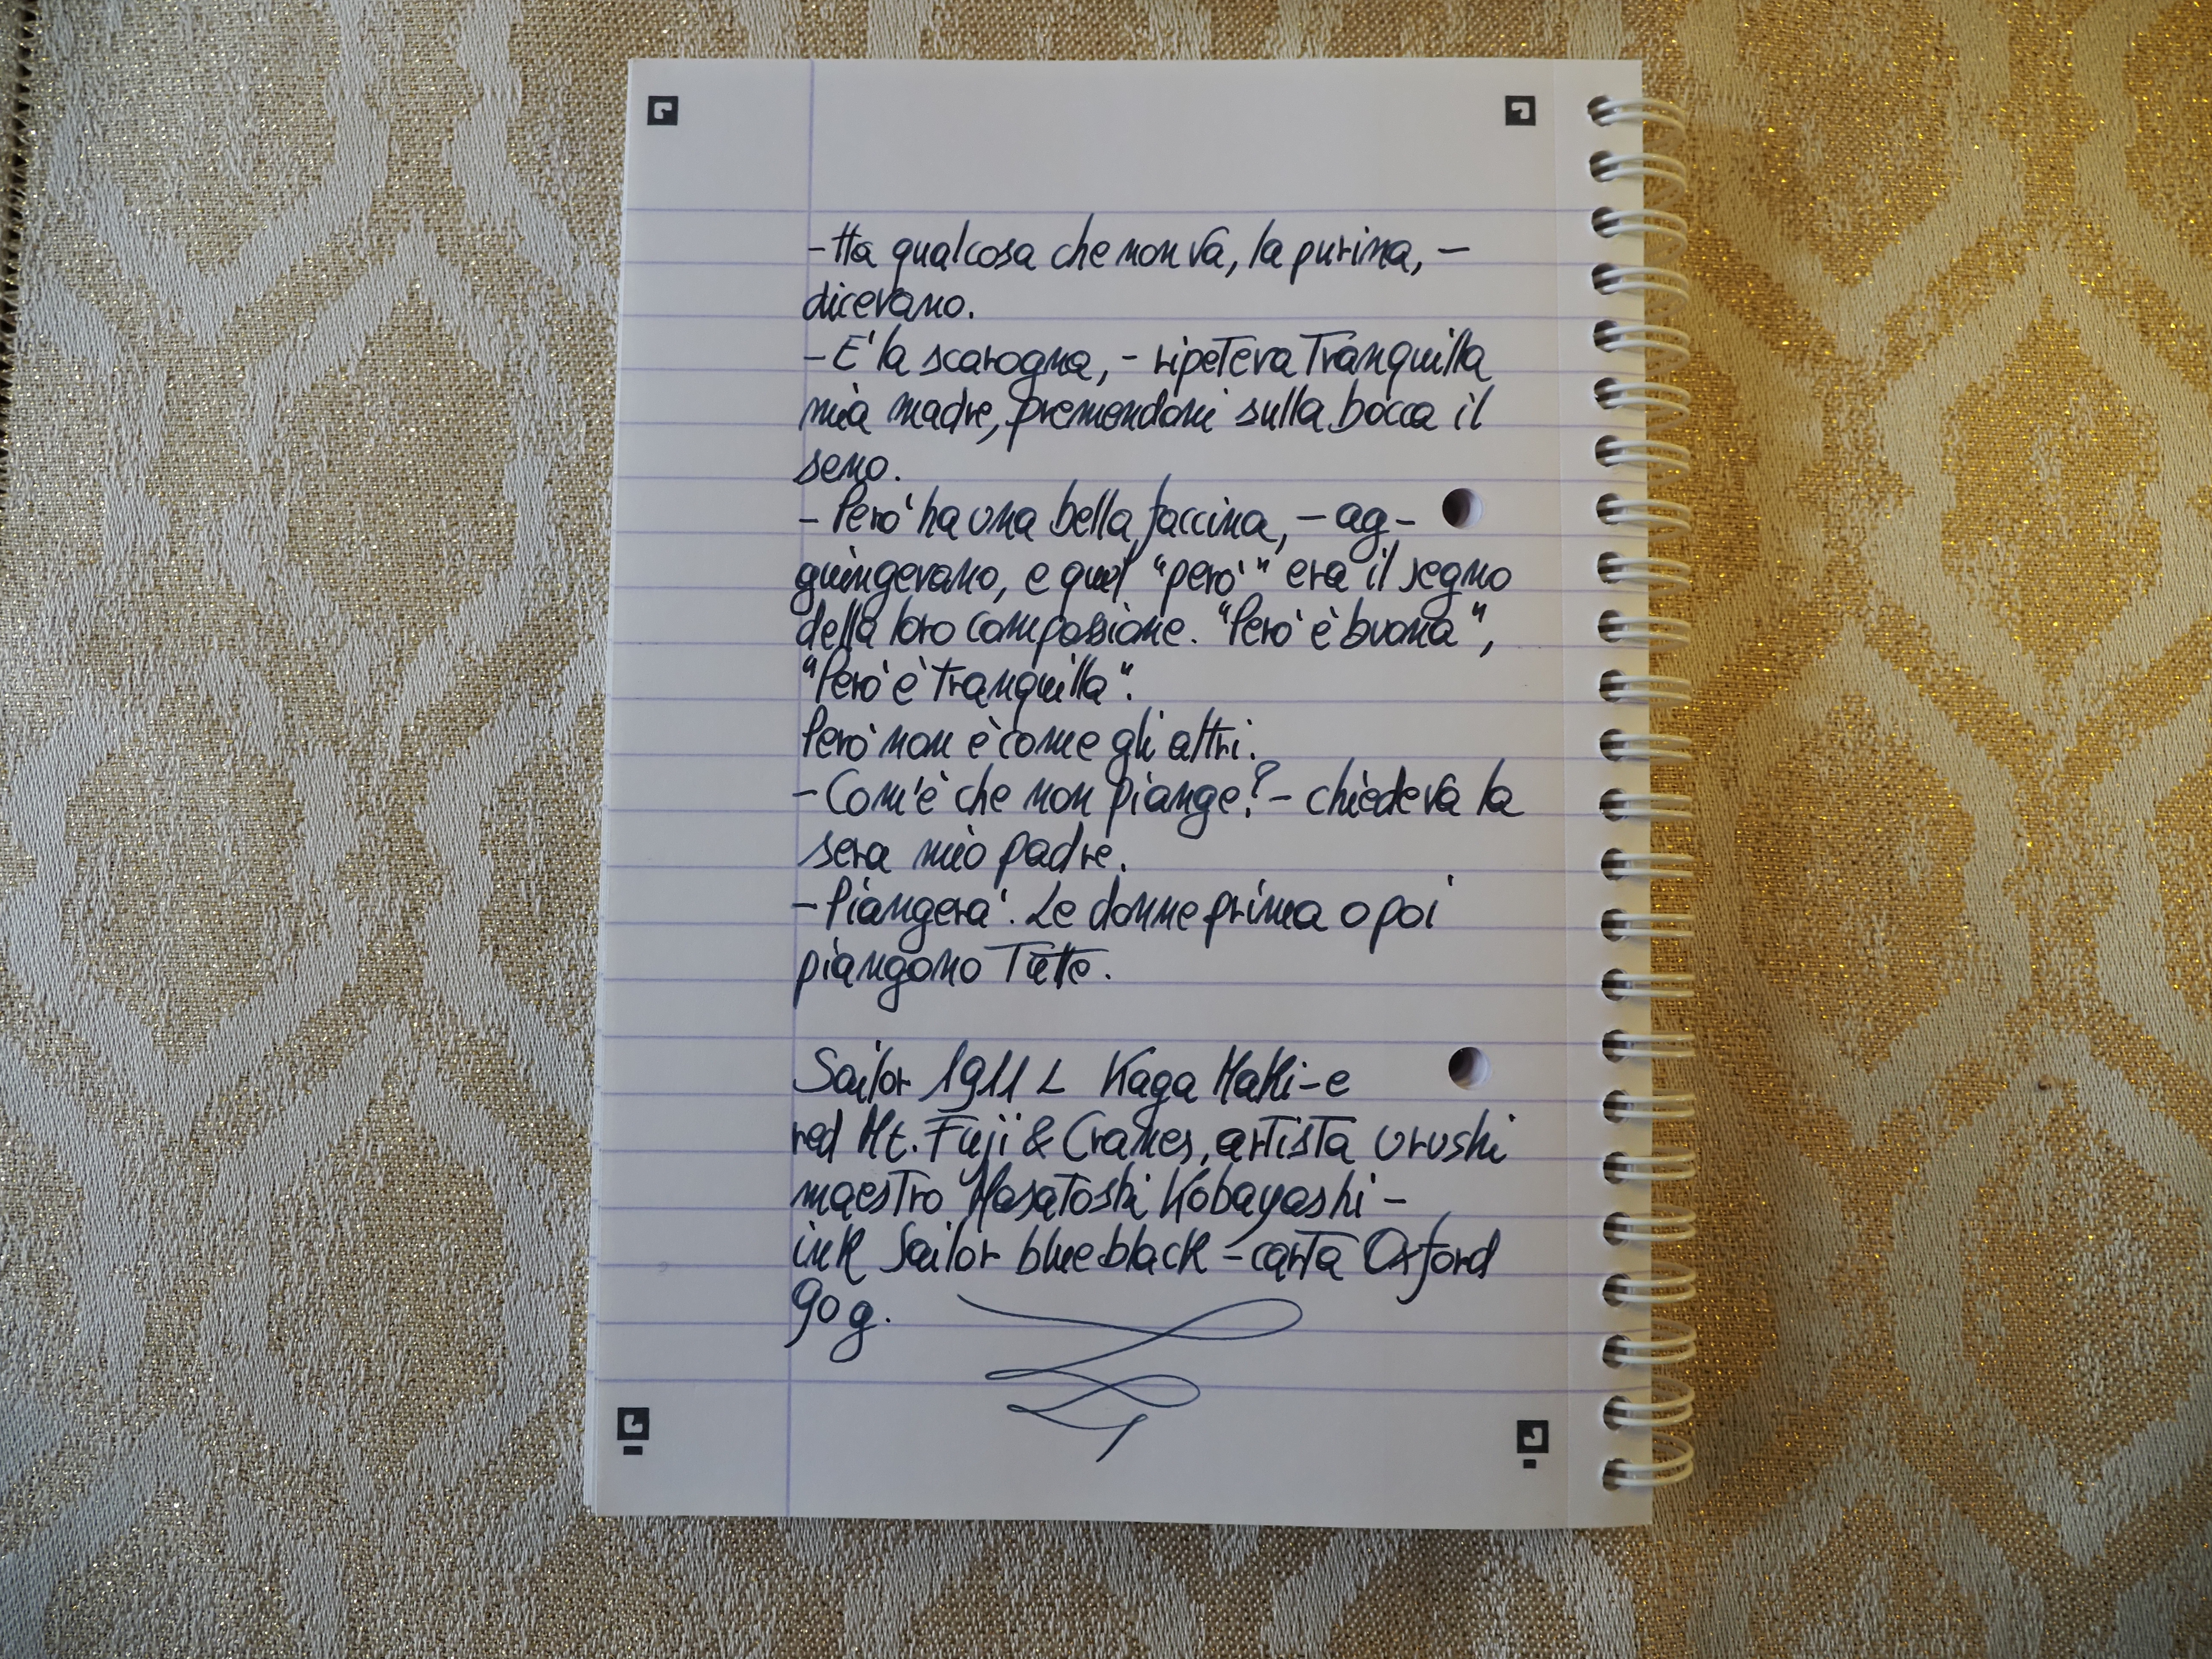 - Ha qualcosa che non va, la purina, -
dicevano.
- E' la scarogna, - ripeteva Tranquilla
mia madre, premendomi sulla bocca il
seno.
- Però ha una bella faccina, - ag-
giungevano, e quel "però" era il segno
della loro compassione. "Però è buona",
"Però è tranquilla".
Però non è come gli altri.
- Com'è che non piange? - chiedeva la
sera mio padre.
- Piangerà. Le donne prima o poi
piangono tutte.
Sailor 1911 L Kaga Maki-e
red Mt. Fuji & Cranes, artista urushi
maestro Masatoshi Kobayashi -
ink Sailor blue black - carta Oxford
90 g.